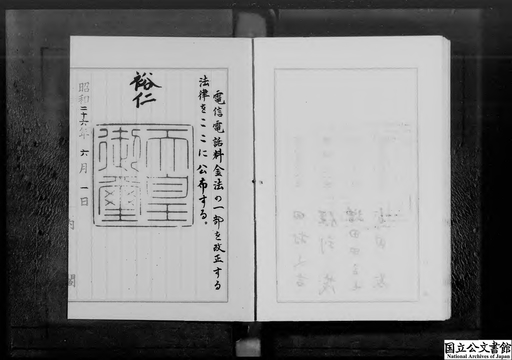 電信電話料金法の一部を改正する
法律をここに公布する。
裕仁
天皇
御璽
昭和二十六年六月一日
内閣
国立公文書館
National Archives of Japan